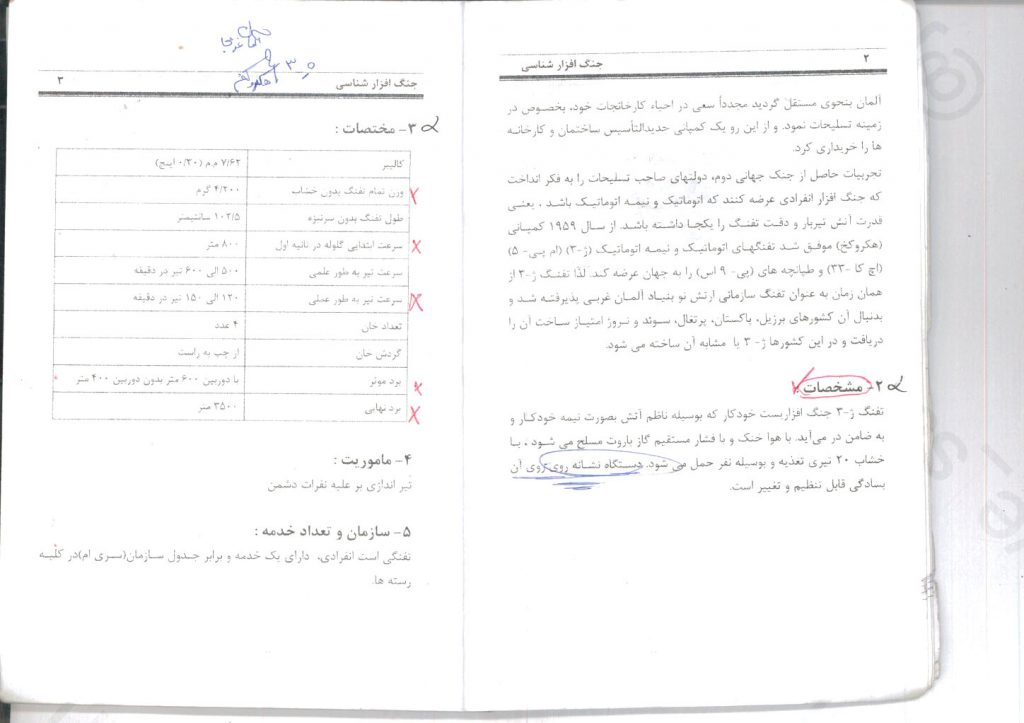 ۲
جنگ افزار شناسی
آلمان بنحوی مستقل گردید مجدداً سعی در احیاء کارخانجات خود، بخصوص در
زمینه تسلیحات نمود. و از این رو یک کمپانی جدیدالتأسیس ساختمان و کارخانه
ها را خریداری کرد.
تجربیات حاصل از جنگ جهانی دوم، دولتهای صاحب تسلیحات را به فکر انداخت
که جنگ افزار انفرادی عرضه کنند که اتوماتیک و نیمه اتوماتیک باشد . یعنی
قدرت آتش تیربار و دقت تفنگ را یکجا داشته باشد. از سال ۱۹۵۹ کمپانی
(هکروکخ) موفق شد تفنگهای اتوماتیک و نیمه اتوماتیک (ژ-۳) (ام پی- ۵)
(اچ کا -۳۳) و طپانچه های (پی- ۹ اس) را به جهان عرضه کند. لذا تفنگ ژ-۳ از
همان زمان به عنوان تفنگ سازمانی ارتش نو بنیاد آلمان غربی پذیرفته شد و
بدنبال آن کشورهای برزیل، پاکستان، پرتغال، سوئد و نروژ امتیاز ساخت آن را
دریافت و در این کشورها ژ- ۳ یا مشابه آن ساخته می شود.
۲- مشخصات :
تفنگ ژ-۳ جنگ افزاریست خودکار که بوسیله ناظم آتش بصورت نیمه خودکار و
به ضامن در می‌آید. با هوا خنک و با فشار مستقیم گاز باروت مسلح می شود ، با
خشاب ۲۰ تیری تغذیه و بوسیله نفر حمل می شود. دستگاه نشانه روی روی آن
بسادگی قابل تنظیم و تغییر است.
جنگ افزار شناسی
۳
۳- مختصات :
کالیبر ۷/۶۲ م.م (۰/۳۰ اینچ)
وزن تمام تفنگ بدون خشاب ۴/۲۰۰ گرم
طول تفنگ بدون سرنیزه ۱۰۲/۵ سانتیمتر
سرعت ابتدایی گلوله در ثانیه اول ۸۰۰ متر
سرعت تیر به طور علمی ۵۰۰ الی ۶۰۰ تیر در دقیقه
سرعت تیر به طور عملی ۱۲۰ الی ۱۵۰ تیر در دقیقه
تعداد خان ۴ عدد
گردش خان از چپ به راست
برد موثر با دوربین ۶۰۰ متر بدون دوربین ۴۰۰ متر
برد نهایی ۳۵۰۰ متر
۴- ماموریت :
تیر اندازی بر علیه نفرات دشمن
۵- سازمان و تعداد خدمه :
تفنگی است انفرادی، دارای یک خدمه و برابر جدول سازمان(سری ام)در کلیه
رسته ها.